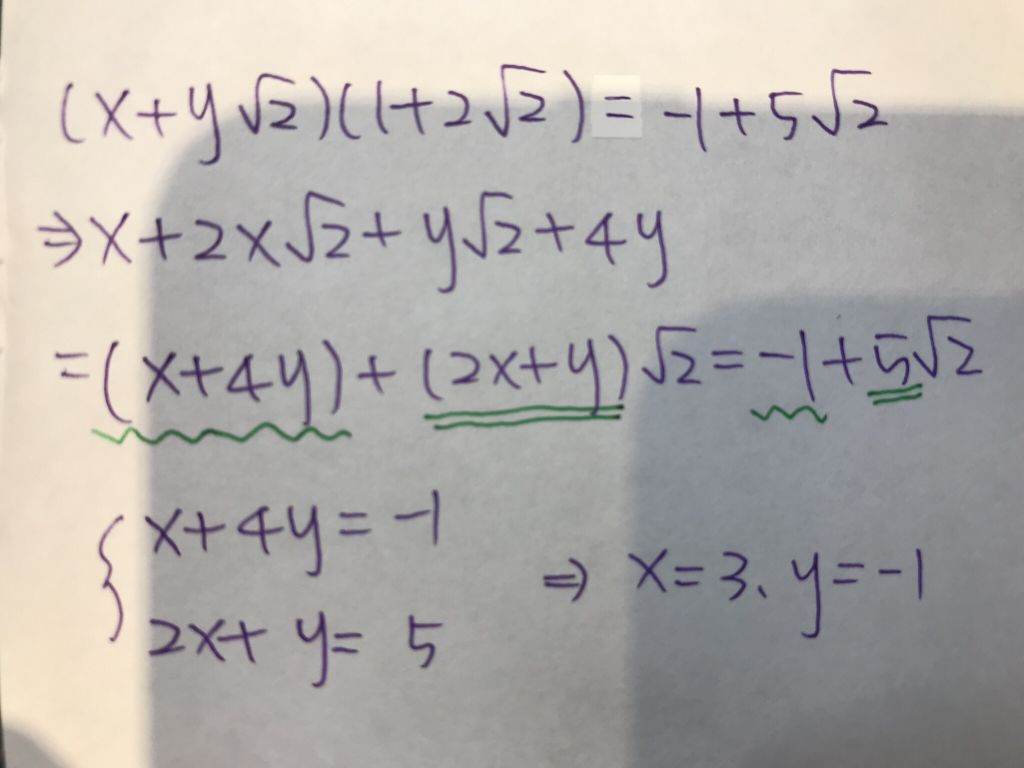 (x+y√2)(1+2√2)=-1+5√2
⇒x+2x√2+y√2+4y
=(x+4y)+(2x+y)√2=-1+5√2
{x+4y=-1
2x+y=5
⇒x=3、y=-1